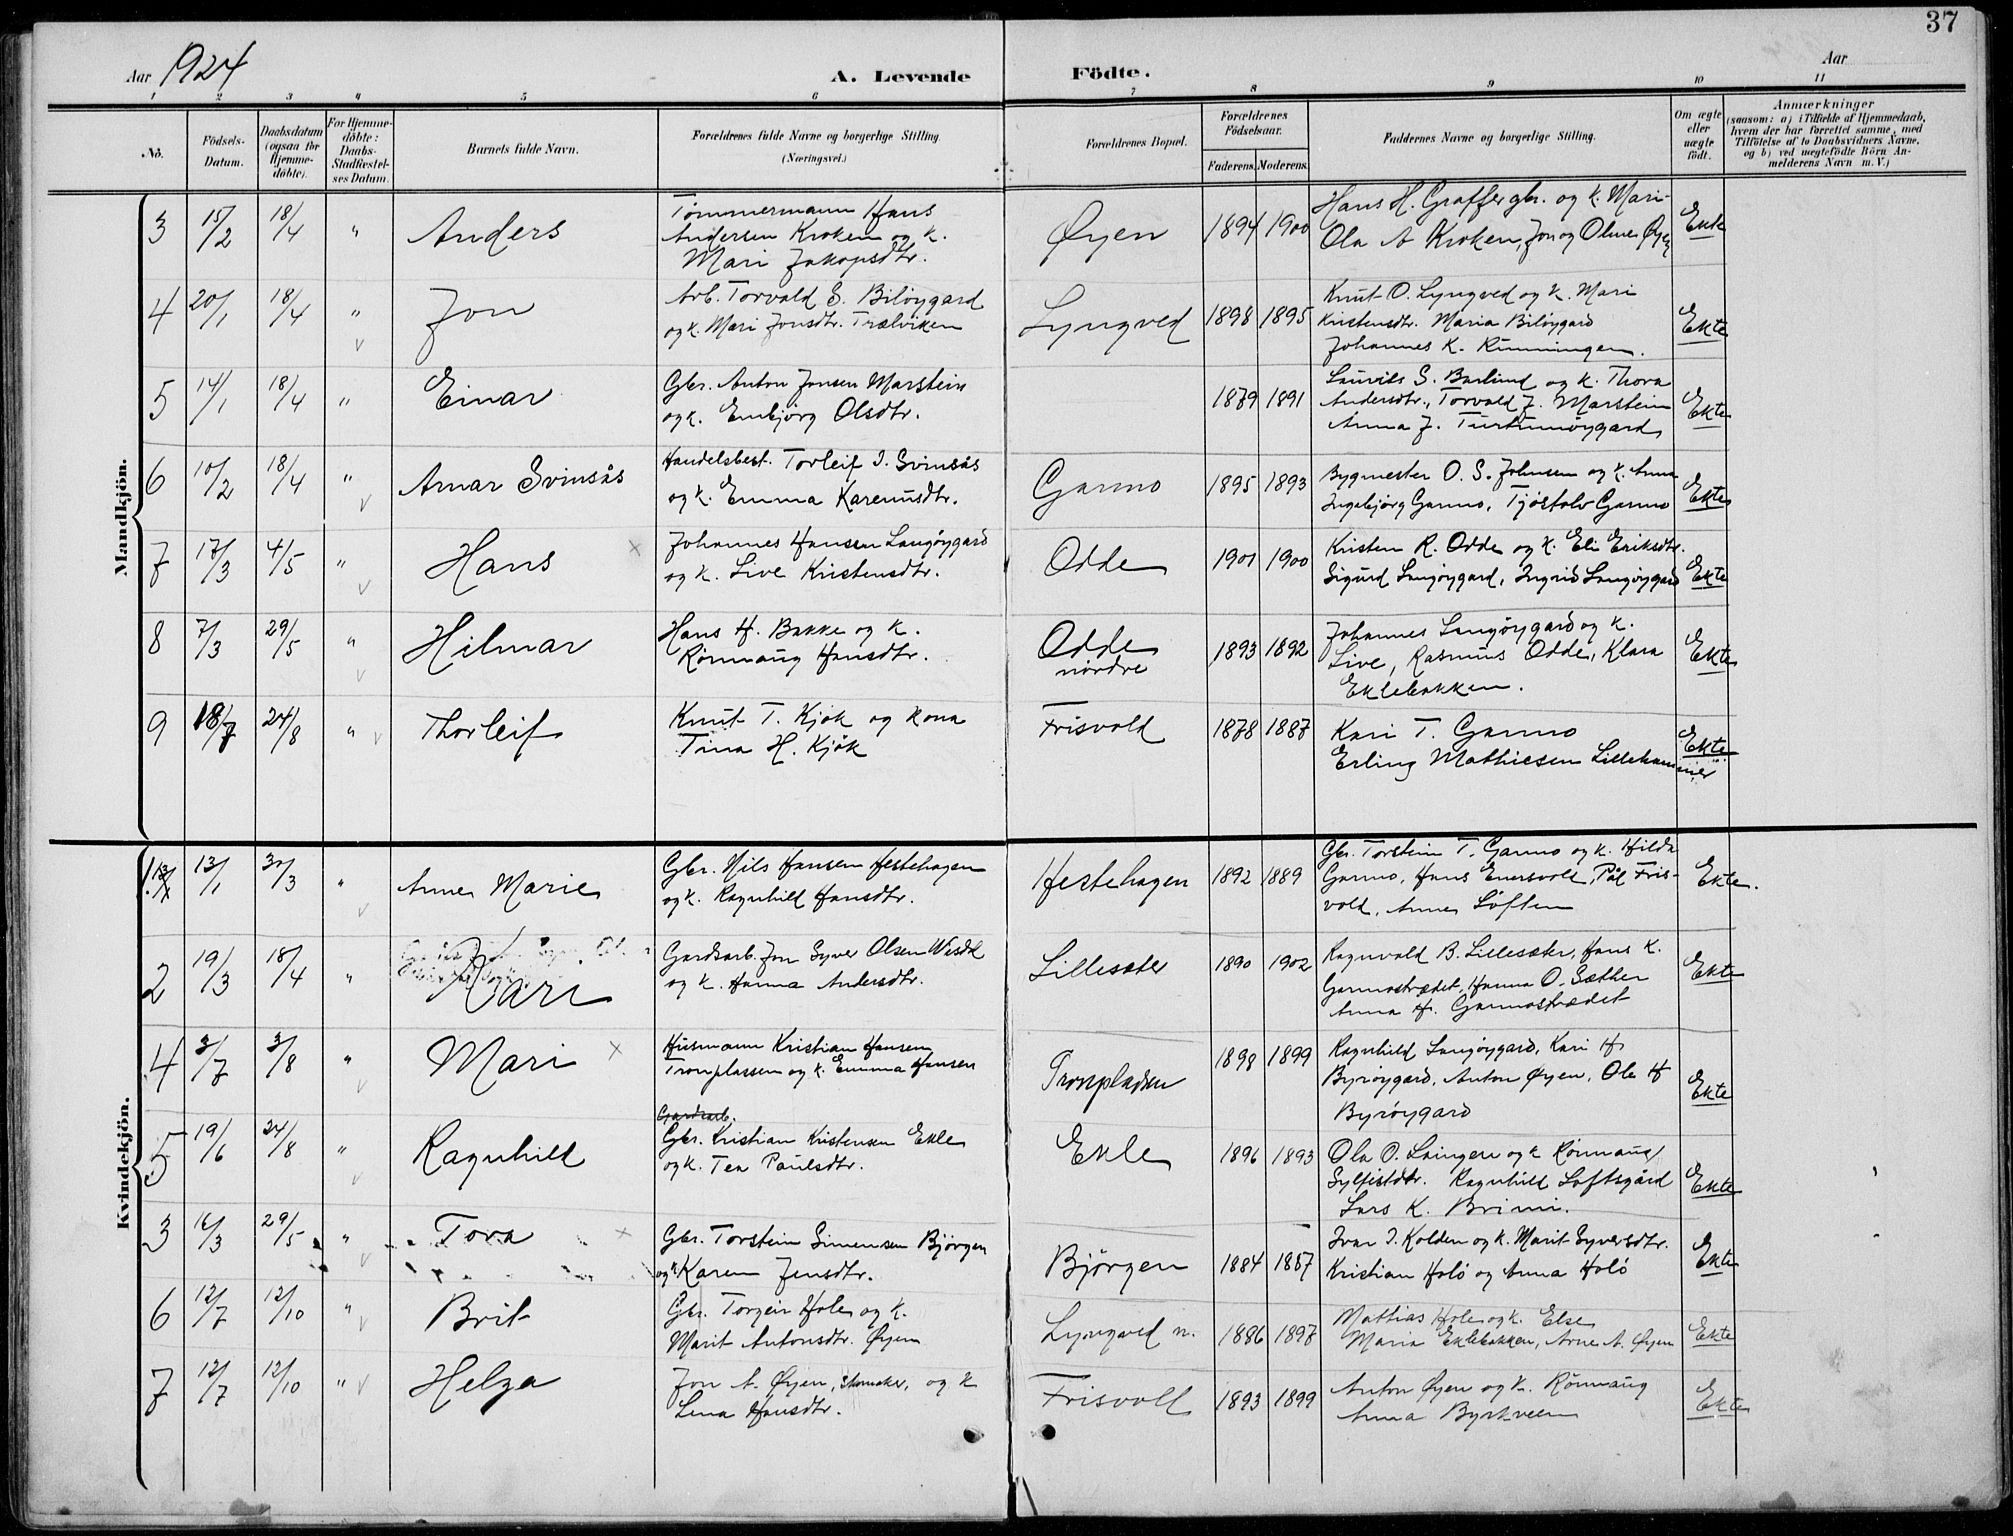 37
Aar 1924
A. Levende Födte.
Aar
1 2 3 4 5 6 7 8 9 10 11
No.
Födsels-Datum.
Daabsdatum (ogsaa for Hjemme-döbte).
For Hjemme-döbte: Daabs-Stadfæstel-ses Datum.
Barnets fulde Navn.
Forældrenes fulde Navne og borgerlige Stilling. (Næringsvei.)
Forældrenes Bopæl.
Forældrenes Födselsaar.
Faderens. Moderens.
Faddernes Navne og borgerlige Stilling.
Om ægte eller uægte födt.
Anmærkninger
(saasom: a) i Tilfælde af Hjemmedaab,
hvem der har forrettet samme, med
Tilföielse af to Daabsvidners Navne,
og b) ved uægtefödte Börn An-
melderens Navn m. V.)
Mandkjön.
3 15/2 18/4 " Anders
Tømmermann Hans
Andersen Kroken og k.
Mari Jakopsdtr.
Øyen 1894 1900
Hans H. Graffer gbr. og k. Mari
Ola A Kroken, Jon og Oline Øyen
Ekte
4 20/1 18/4 " Jon
Arb. Torvald S. Biløygard
og k. Mari Jonsdtr. Trælviken
Lyngved 1898 1895
Knut O. Lyngved og k. Mari
Kristensdtr. Maria Biløygard
Johannes K. Rinningen.
Ekte
5 14/1 18/4 " Einar
Gbr. Anton Jonsen Marstein
og k. Embjørg Olsdtr.
1879 1891
Laurits S. Barlund og k. Thora
Andersdtr., Torvald J. Marstein
Anna J.
Ekte
6 10/2 18/4 " Arnar Svinsås
Handelsbest. Torleif I. Svinsås
og k. Emma Karenusdtr.
Garmo 1895 1893
Bygmester O. S. Johnsen og k. Anna
Ingebjørg Garmo, Tjøstolv Garmo
Ekte
7 17/3 4/5 " Hans
Johannes Hansen Langøygard
og k. Live Kristensdtr.
Odde 1901 1900
Kristen R. Odde og k. Eli Eriksdtr.
Sigurd Langøygard, Ingrid Langøygard
Ekte
8 7/3 29/5 " Hilmar
Hans H. Bakke og k.
Rønnaug Hansdtr.
Odde nordre 1893 1892
Johannes Langøygard og k.
Live, Rasmus Odde, Klara
Eklebakken.
Ekte
9 18/7 24/8 " Thorleif
Knut T. Kjøk og kona
Tina H. Kjøk
Frisvold 1878 1887
Kari T. Garmo
Erling Mathiesen Lillehammer
Ekte
Kvindekjön.
1. 13/1 30/3 " Anne Marie
Gbr. Nils Hansen Hestehagen
og k. Ragnhild Hansdtr.
Hestehagen 1892 1889
Gbr. Torstein T. Garmo og k. Hilda
Garmo, Hans Enersvoll, Pål Fris-
vold, Anne Løften
Ekte.
2 19/3 18/4 " Kari
Gardsarb. Jon Syver Olsen
og k. Hanna Andersdtr.
Lillesæter 1890 1902
Ragnvald B. Lillesæter, Hans K.
Garmostrædet, Hanna O. Sæther
Anna H. Garmostrædet
Ekte
4 3/7 3/8 " Mari
Husmann Kristian Hansen
Tronplassen og k. Emma Hansen
Tronpladsen 1898 1899
Ragnhild Langøygard, Kari H
Byrøygard, Anton Øyen, Ole H
Byrøygard
Ekte
5 19/6 24/8 " Ragnhild
Gardsarb.
Gbr. Kristian Kristensen Ekle
og k. Tea Paulsdtr.
Ekle 1896 1893
Ola O. Laingen og k Rønnaug
Sylfestdtr. Ragnhild Loftsgård
Lars K. Brimi.
Ekte
3 16/3 29/5 " Tora
Gbr. Torstein Simensen Bjørgen
og k Karen Jensdtr.
Bjørgen 1884 1887
Ivar I. Kolden og k. Marit Syversdtr.
Kristian Holø og Anna Holø
Ekte
6 12/7 12/10 " Brit
Gbr. Torgeir Hole og k.
Marit Antonsdtr. Øyen
Lyngved n. 1886 1897
Mathias Hole og k. Else
Maria Eklebakken, Arne A. Øyen
Ekte
7 12/7 12/10 " Helga
Jon A. Øyen, Skomaker, og k
Lina Hansdtr.
Frisvoll 1893 1899
Anton Øyen og k. Rønnaug
Anna Byrkveen
Ekte